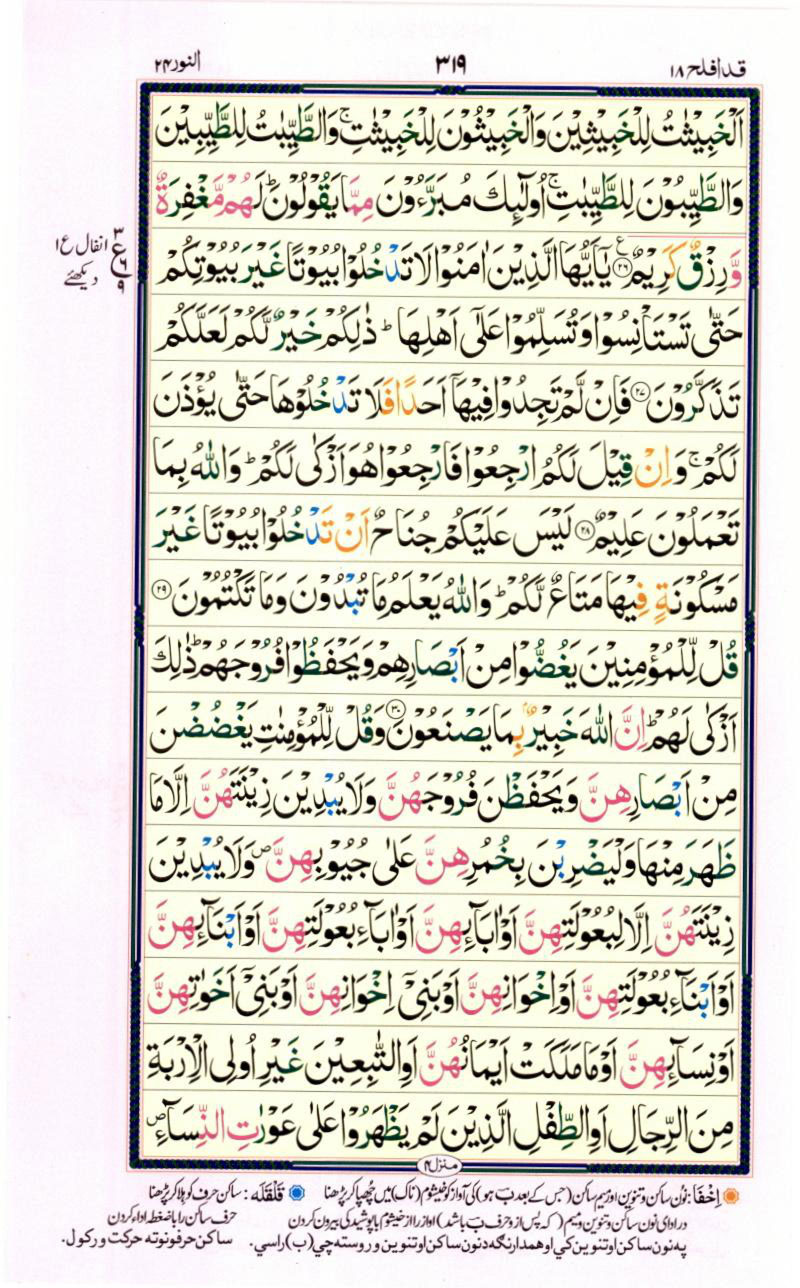 قدافلح ١٨
٣١٩
النور ٢٤
اَلْخَبِيْثٰتُ لِلْخَبِيْثِيْنَ وَالْخَبِيْثُوْنَ لِلْخَبِيْثٰتِ ۚ وَالطَّيِّبٰتُ لِلطَّيِّبِيْنَ
وَالطَّيِّبُوْنَ لِلطَّيِّبٰتِ ۚ اُولٰٓئِكَ مُبَرَّءُوْنَ مِمَّا يَقُوْلُوْنَ ؕ لَهُمْ مَّغْفِرَةٌ
وَّ رِزْقٌ كَرِيْمٌ ﴿٢٦﴾ يٰۤاَيُّهَا الَّذِيْنَ اٰمَنُوْا لَا تَدْخُلُوْا بُيُوْتًا غَيْرَ بُيُوْتِكُمْ
حَتّٰى تَسْتَاْنِسُوْا وَتُسَلِّمُوْا عَلٰٓى اَهْلِهَا ؕ ذٰلِكُمْ خَيْرٌ لَّكُمْ لَعَلَّكُمْ
تَذَكَّرُوْنَ ﴿٢٧﴾ فَاِنْ لَّمْ تَجِدُوْا فِيْهَاۤ اَحَدًا فَلَا تَدْخُلُوْهَا حَتّٰى يُؤْذَنَ
لَكُمْ ۚ وَاِنْ قِيْلَ لَكُمُ ارْجِعُوْا فَارْجِعُوْا هُوَ اَزْكٰى لَكُمْ ؕ وَاللّٰهُ بِمَا
تَعْمَلُوْنَ عَلِيْمٌ ﴿٢٨﴾ لَيْسَ عَلَيْكُمْ جُنَاحٌ اَنْ تَدْخُلُوْا بُيُوْتًا غَيْرَ
مَسْكُوْنَةٍ فِيْهَا مَتَاعٌ لَّكُمْ ؕ وَاللّٰهُ يَعْلَمُ مَا تُبْدُوْنَ وَمَا تَكْتُمُوْنَ ﴿٢٩﴾
قُلْ لِّلْمُؤْمِنِيْنَ يَغُضُّوْا مِنْ اَبْصَارِهِمْ وَيَحْفَظُوْا فُرُوْجَهُمْ ؕ ذٰلِكَ
اَزْكٰى لَهُمْ ؕ اِنَّ اللّٰهَ خَبِيْرٌۢ بِمَا يَصْنَعُوْنَ ﴿٣٠﴾ وَقُلْ لِّلْمُؤْمِنٰتِ يَغْضُضْنَ
مِنْ اَبْصَارِهِنَّ وَيَحْفَظْنَ فُرُوْجَهُنَّ وَلَا يُبْدِيْنَ زِيْنَتَهُنَّ اِلَّا مَا
ظَهَرَ مِنْهَا وَلْيَضْرِبْنَ بِخُمُرِهِنَّ عَلٰى جُيُوْبِهِنَّ ۪ وَلَا يُبْدِيْنَ
زِيْنَتَهُنَّ اِلَّا لِبُعُوْلَتِهِنَّ اَوْ اٰبَآئِهِنَّ اَوْ اٰبَآءِ بُعُوْلَتِهِنَّ اَوْ اَبْنَآئِهِنَّ
اَوْ اَبْنَآءِ بُعُوْلَتِهِنَّ اَوْ اِخْوَانِهِنَّ اَوْ بَنِيْۤ اِخْوَانِهِنَّ اَوْ بَنِيْۤ اَخَوٰتِهِنَّ
اَوْ نِسَآئِهِنَّ اَوْ مَا مَلَكَتْ اَيْمَانُهُنَّ اَوِ التّٰبِعِيْنَ غَيْرِ اُولِى الْاِرْبَةِ
مِنَ الرِّجَالِ اَوِ الطِّفْلِ الَّذِيْنَ لَمْ يَظْهَرُوْا عَلٰى عَوْرٰتِ النِّسَآءِ ۪
٣
ع
٦
٩
انفال ع ١
دیکھئے
منزل ۴
اِخفَا: نون ساکن و تنوین اور میم ساکن (جس کے بعد ب ہو) کی آواز کو خیشوم (ناک) میں چھپا کر پڑھنا
قَلقَلَه: ساکن حرف کو ہلا کر پڑھنا
در ادای نون ساکن و تنوین و میم (که پس از و حرف ب باشد) اواز را از خیشوم با پوشیدگی بیرون کردن
حرف ساکن را با ضغط اداء کردن
په نون ساکن او تنوین کی او همدارنگه د نون ساکن او تنوین وروسته چي (ب) راسي.
ساکن حرفونو ته حرکت ورکول.